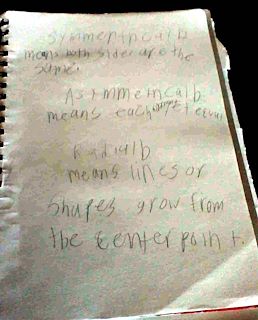 symmentrical b
means both sides are the
same.
Asymmetrical b
means each equal
Radial b
means lines or
shapes grow from
the center point.